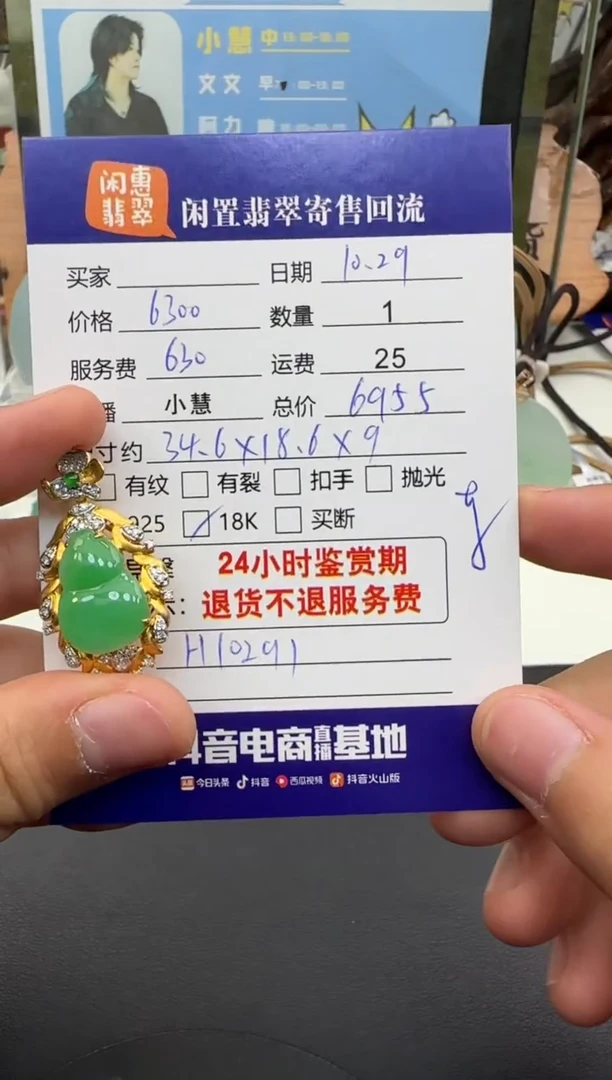 小慧 中
文文 早
闲惠
翡翠
闲置翡翠寄售回流
买家 日期 10.29
价格 6300 数量 1
服务费 630 运费 25
播 小慧 总价 6955
寸约 34.6×18.6×9
有纹 有裂 扣手 抛光
925 18K 买断
24小时鉴赏期
退货不退服务费
H10291
抖音电商直播基地
今日头条 抖音 西瓜视频 抖音火山版